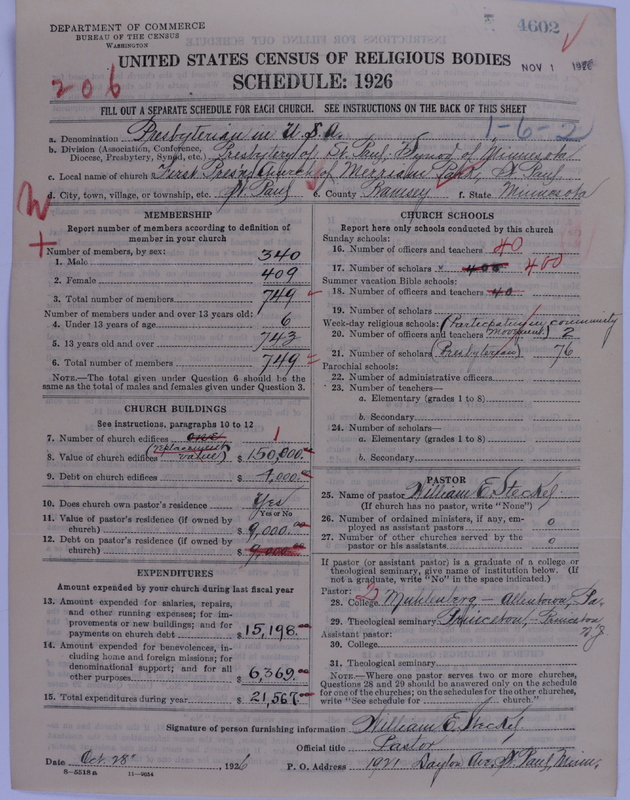 DEPARTMENT OF COMMERCE
BUREAU OF THE CENSUS
WASHINGTON
4602
UNITED STATES CENSUS OF RELIGIOUS BODIES
NOV 1 1926
SCHEDULE: 1926
206
FILL OUT A SEPARATE SCHEDULE FOR EACH CHURCH. SEE INSTRUCTIONS ON THE BACK OF THIS SHEET
1-6-2
a. Denomination Presbyterian in U.S.A.
b. Division (Association, Conference,
Diocese, Presbytery, Synod, etc.) Presbytery of St. Paul, Synod of Minnesota
c. Local name of church First Presb. Church of Merriam Park, St. Paul,
d. City, town, village, or township, etc. St. Paul e. County Ramsey f. State Minnesota
MEMBERSHIP
Report number of members according to definition of
member in your church
Number of members, by sex:
1. Male 340
2. Female 409
3. Total number of members 749
Number of members under and over 13 years old:
4. Under 13 years of age 6
5. 13 years old and over 743
6. Total number of members 749
NOTE.—The total given under Question 6 should be the
same as the total of males and females given under Question 3.
CHURCH BUILDINGS
See instructions, paragraphs 10 to 12
7. Number of church edifices one 1
8. Value of church edifices (replacement value) $ 150,000.
9. Debt on church edifices $ 4,000.
10. Does church own pastor's residence Yes
Yes or No
11. Value of pastor's residence (if owned by
church) $ 9,000.
12. Debt on pastor's residence (if owned by
church) $ 9,000.
EXPENDITURES
Amount expended by your church during last fiscal year
13. Amount expended for salaries, repairs,
and other running expenses; for im-
provements or new buildings; and for
payments on church debt $ 15,198.
14. Amount expended for benevolences, in-
cluding home and foreign missions; for
denominational support; and for all
other purposes $ 6,369.
15. Total expenditures during year $ 21,567.
CHURCH SCHOOLS
Report here only schools conducted by this church
Sunday schools:
16. Number of officers and teachers 40
17. Number of scholars 400 400
Summer vacation Bible schools:
18. Number of officers and teachers 40
19. Number of scholars
Week-day religious schools: (Participating in community
20. Number of officers and teachers movement) 2
21. Number of scholars (Presbyterian) 76
Parochial schools:
22. Number of administrative officers
23. Number of teachers—
a. Elementary (grades 1 to 8)
b. Secondary
24. Number of scholars—
a. Elementary (grades 1 to 8)
b. Secondary
PASTOR
25. Name of pastor William E. Steckel
(If church has no pastor, write "None")
26. Number of ordained ministers, if any, em-
ployed as assistant pastors 0
27. Number of other churches served by the
pastor or his assistants 0
If pastor (or assistant pastor) is a graduate of a college or
theological seminary, give name of institution below. (If
not a graduate, write "No" in the space indicated.)
Pastor:
28. College Muhlenberg - Allentown, Pa.
29. Theological seminary Princeton, - Princeton N.J.
Assistant pastor:
30. College
31. Theological seminary
NOTE.—Where one pastor serves two or more churches,
Questions 28 and 29 should be answered only on the schedule
for one of the churches; on the schedules for the other churches,
write "See schedule for church."
Signature of person furnishing information William E. Steckel
Official title Pastor
Date Oct. 28, 1926 P. O. Address 1921 Dayton Ave. St. Paul, Minn.
8-5518a 11-9054